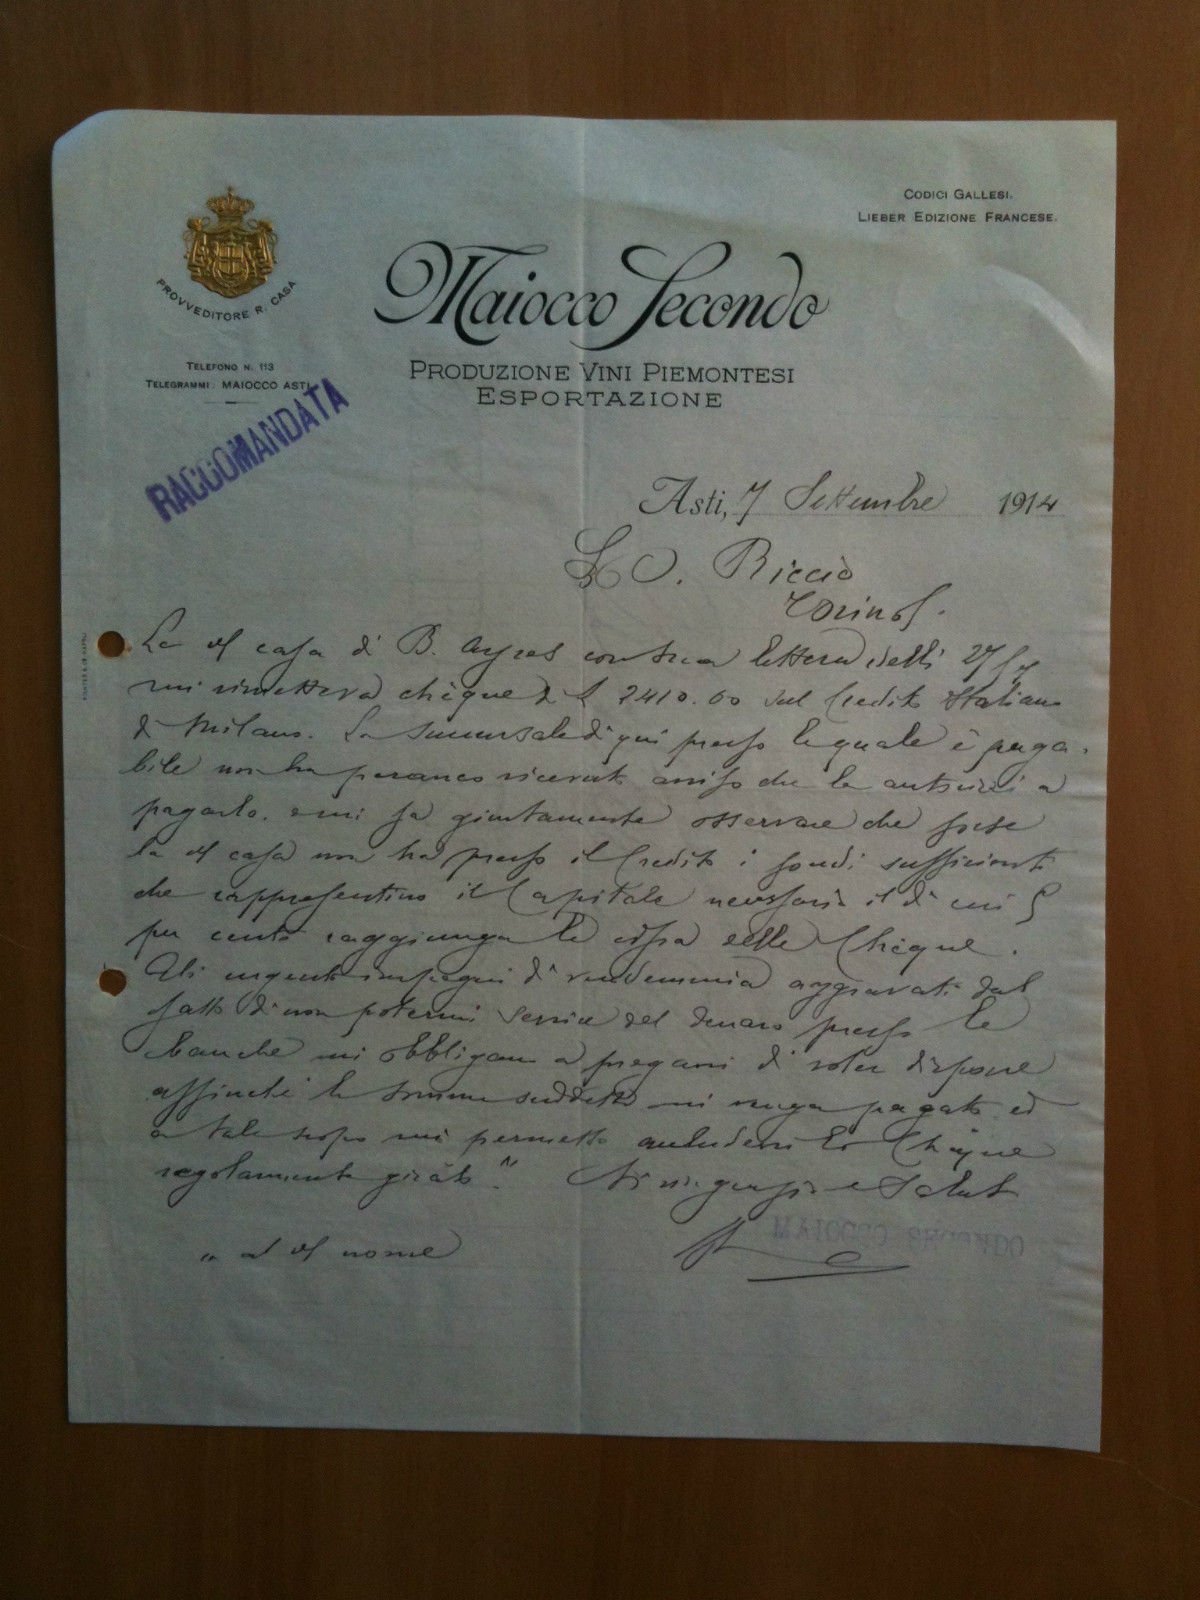 CODICI GALLESI.
LIEBER EDIZIONE FRANCESE.
PROVVEDITORE R. CASA
Maiocco Secondo
TELEFONO N. 113
TELEGRAMMI: MAIOCCO ASTI
PRODUZIONE VINI PIEMONTESI
ESPORTAZIONE
RACCOMANDATA
Asti, 7 Settembre 1914
O. Riccio
Torino
La casa di B. Ayres con sua lettera delli 27
mi rimetteva chèque di £ 2410.00 sul Credito Italiano
di Milano. La succursale di qui presso la quale è paga-
bile non ha peranco ricevuto avviso che la autorizzi a
pagarlo. e mi fa giustamente osservare che forse
la casa non ha presso il Credito i fondi sufficienti
che rappresentino il Capitale necessario il di cui 5
per cento raggiunga la cifra dello Chèque.
Gli urgenti impegni di vendemmia aggravati dal
fatto di non potermi servire del denaro presso le
banche mi obbligano a pregarvi di voler disporre
affinchè la somma suddetta mi venga pagata ed
a tale scopo mi permetto accludervi lo Chèque
regolarmente girato." Vi ringrazio e saluto
MAIOCCO SECONDO
" al nome